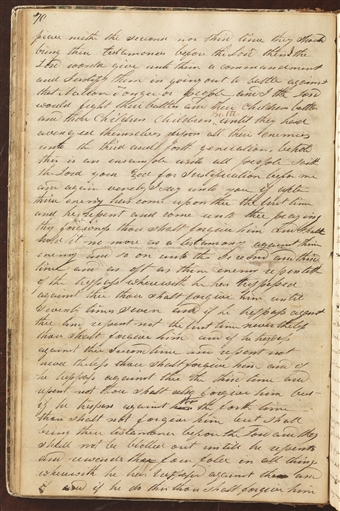 70
peace unto the second nor third time they should
bring their testamones before the Lord then the
Lord would give unto them a commandment
and Justify them in going out to battle against
that Nation Tongue or People and the Lord
would fight their battles and their Childrens battles
and their Childrens Childrens until they had
avenged themselves upon all their enemies
unto the third and forth generation behold
this is an ensample unto all people saith
the Lord your God for Justification before me
and again verily I say unto you if after
thine enemy has come upon thee the first time
and he repent and come unto thee praying
thy forgivness thou shalt forgive him and shall
hold it no more as a testamony against thine
enemy and so on unto the second and third
time and as oft as thine enemy repenteth
of the tresspass wherewith he has tresspassed
against thee thou shalt forgive him until
seventy times seven and if he tresspass against
thee and repent not the first time nevertheless
thou shalt forgive him and if he tresspass
against thee the second time and repent not
neve theless thou shalt forgive him and if
he tresspass against thee the third time and
repent not thou shalt also forgive him but
if he trespass against thee the forth time
thou shalt not forgive him but shall
bring these testamones before the Lord and they
shall not be blotted out untill he repents
and rewards thee four fold in all things
wherewith he has tresspassed against thee and
if he do this thou shalt forgive him